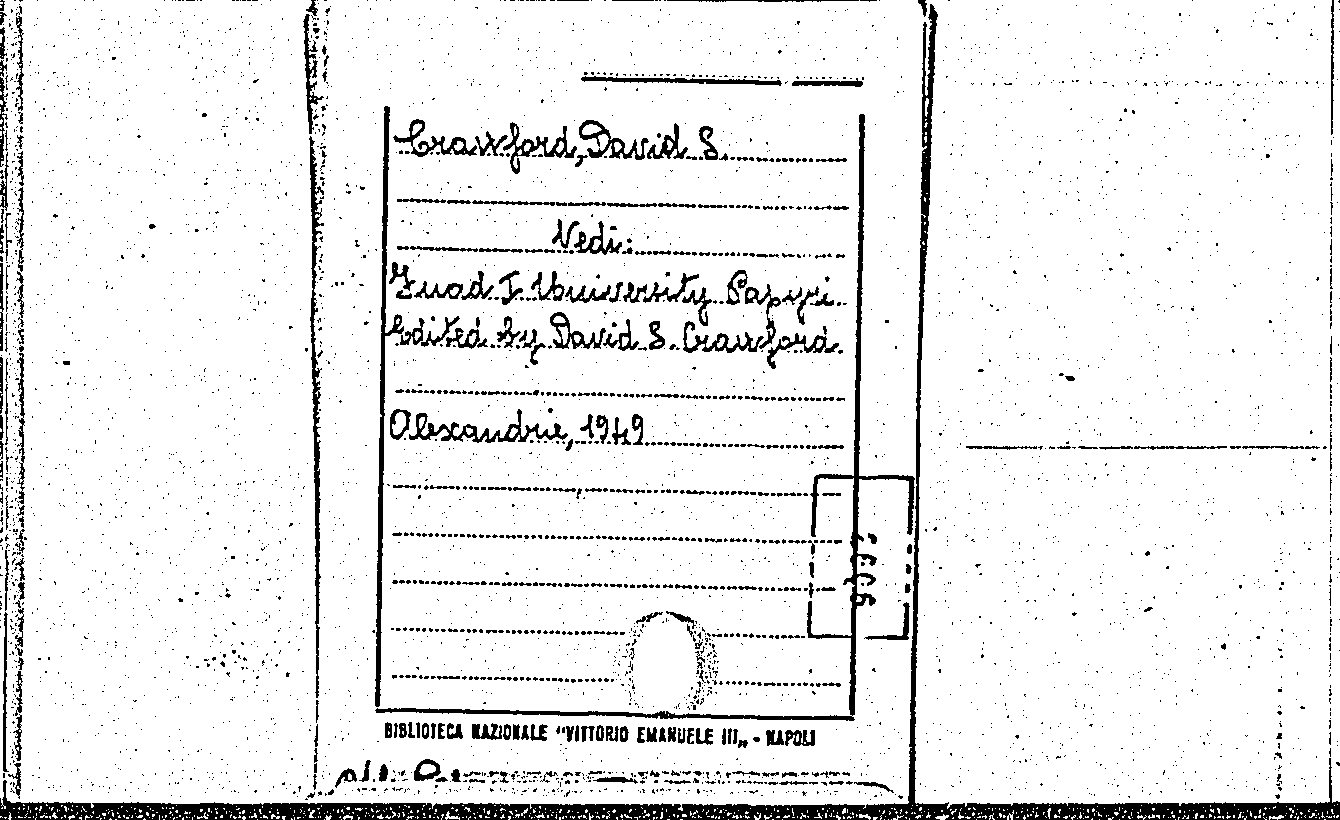 Crawford, David S.
Vedi:
Fuad I University Papyri.
Edited by David S. Crawford.
Alexandrie, 1949
BIBLIOTECA NAZIONALE "VITTORIO EMANUELE III„ - NAPOLI